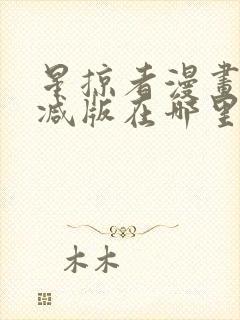 星掠者漫畫
减版在哪里
木木